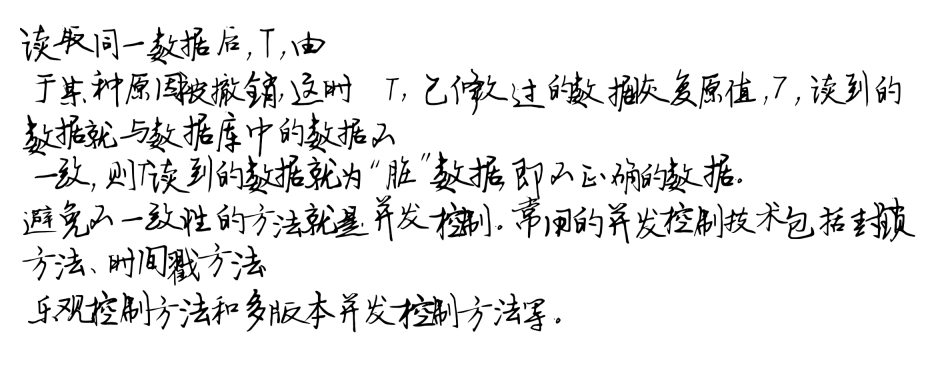 读取同一数据后,T,由
于某种原因被撤销,这时 T,已修改过的数据恢复原值,T,读到的
数据就与数据库中的数据不
一致,则T读到的数据就为“脏”数据,即不正确的数据。
避免不一致性的方法就是并发控制。常用的并发控制技术包括封锁
方法、时间戳方法
乐观控制方法和多版本并发控制方法等。